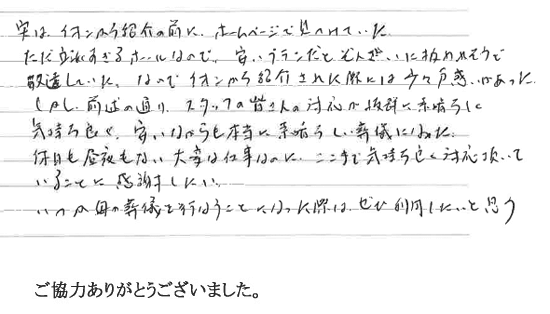 実は イオンから紹介の前に、ホームページで見つけていた。
ただ立派すぎるホールなので、安いプランだとぞんざいに扱われそうで
敬遠していた。なので イオンから紹介された際には少々戸惑いがあった。
しかし、前述の通り、スタッフの皆さんの対応が抜群に素晴らしく
気持ち良く、安いながらも本当に素晴らしい葬儀になった。
休日も昼夜もない大変な仕事なのに、ここまで気持ち良く対応頂いて
いることに感謝したい。
いつか母の葬儀を行なうことになった際は、ぜひ利用したいと思う
ご協力ありがとうございました。